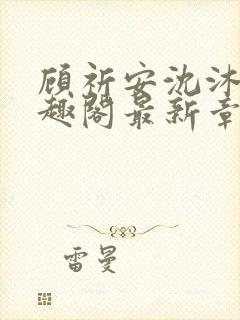 顾祈安沈沐
趣阁最新章
雷曼